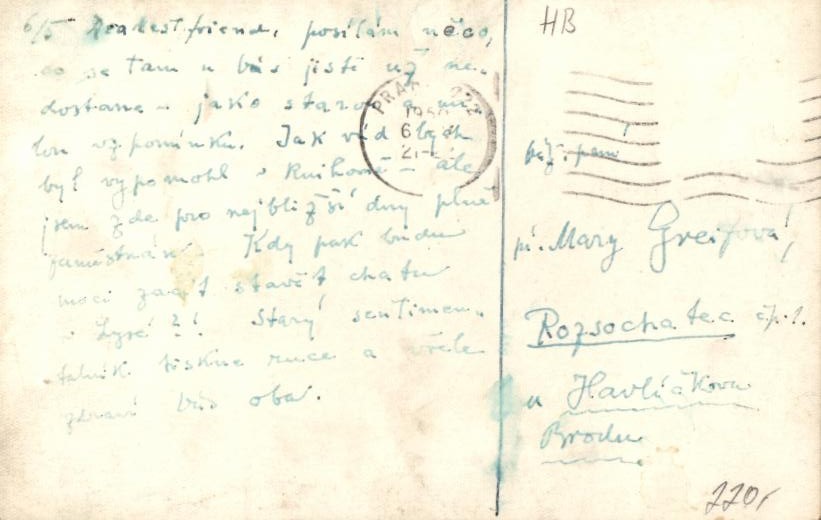 6/5 Dearest friend, posílám něco,
co se tam u Vás jistě už ne-
dostane - jako starou a mi-
lou vzpomínku. Jak rád bych
byl vypomohl v Knihovně - ale
jsem zde pro nejbližší dny plně
zaměstnán. Kdy pak budu
moci začít stavět chatu
v Lysé?! Starý sentimen-
talník tiskne ruce a vřele
zdraví Vás oba.
HB
PRAHA
6
pí. Mary Greifová,
Rozsochatec čp. 1.
u Havlíčkova
Brodu
220,